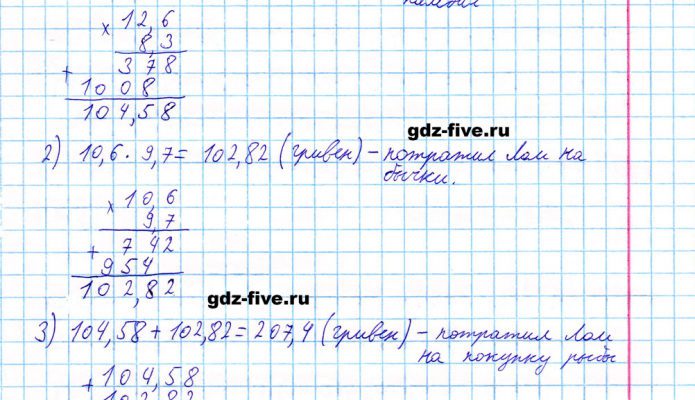 × 12,6
8,3
+ 378
1008
104,58
gdz-five.ru
2) 10,6 · 9,7 = 102,82 (гривен) – потратил Лом на
бычки.
× 10,6
9,7
+ 742
954
102,82
gdz-five.ru
3) 104,58 + 102,82 = 207,4 (гривен) – потратил Лом
на покупку рыбы
+ 104,58
102,82